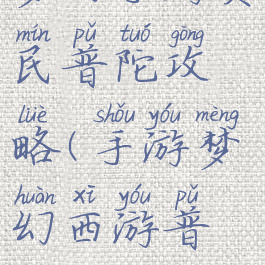 mín pǔ tuó gōng
民普陀攻
lüè shǒu yóu mèng
略(手游梦
huàn xī yóu pǔ
幻西游普